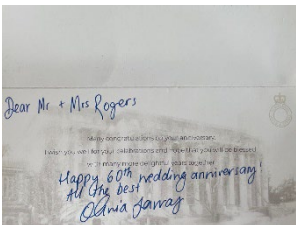 Dear Mr + Mrs Rogers
Many congratulations on your anniversary.
I wish you well for your celebrations and hope that you will be blessed
with many more delightful years together
Happy 60th wedding anniversary!
All the best